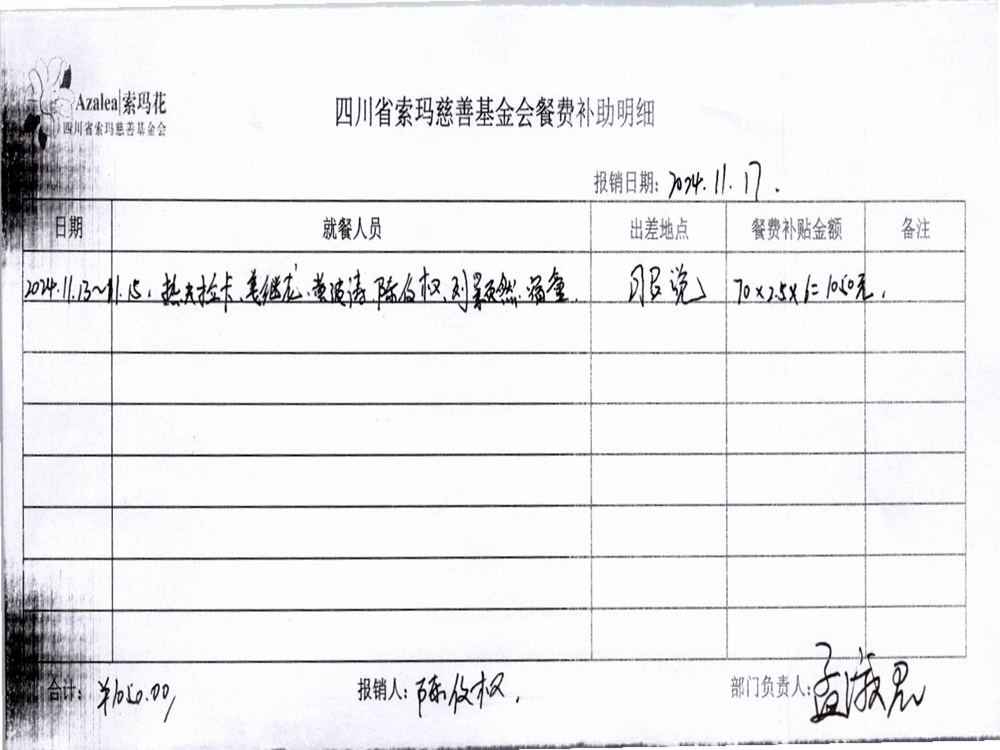 Azalea|索玛花
四川省索玛慈善基金会
四川省索玛慈善基金会餐费补助明细
报销日期：2024.11.17.
日期 就餐人员 出差地点 餐费补贴金额 备注
2024.11.13~11.15. 热 拉卡、姜继龙、黄波涛、陈 权、刘 然 70×2.5×6=1050元.
合计：¥1050.00, 报销人：陈 权. 部门负责人：孟